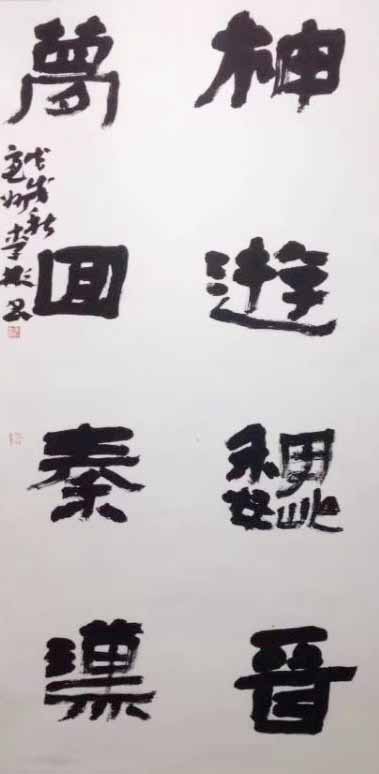 神遊魏晉
夢回秦漢
戊戌秋
亳州李彬书